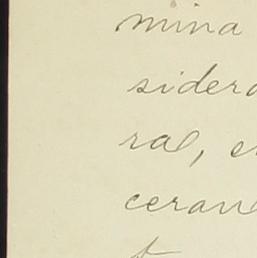 mina
sidera
ral, e
ceran